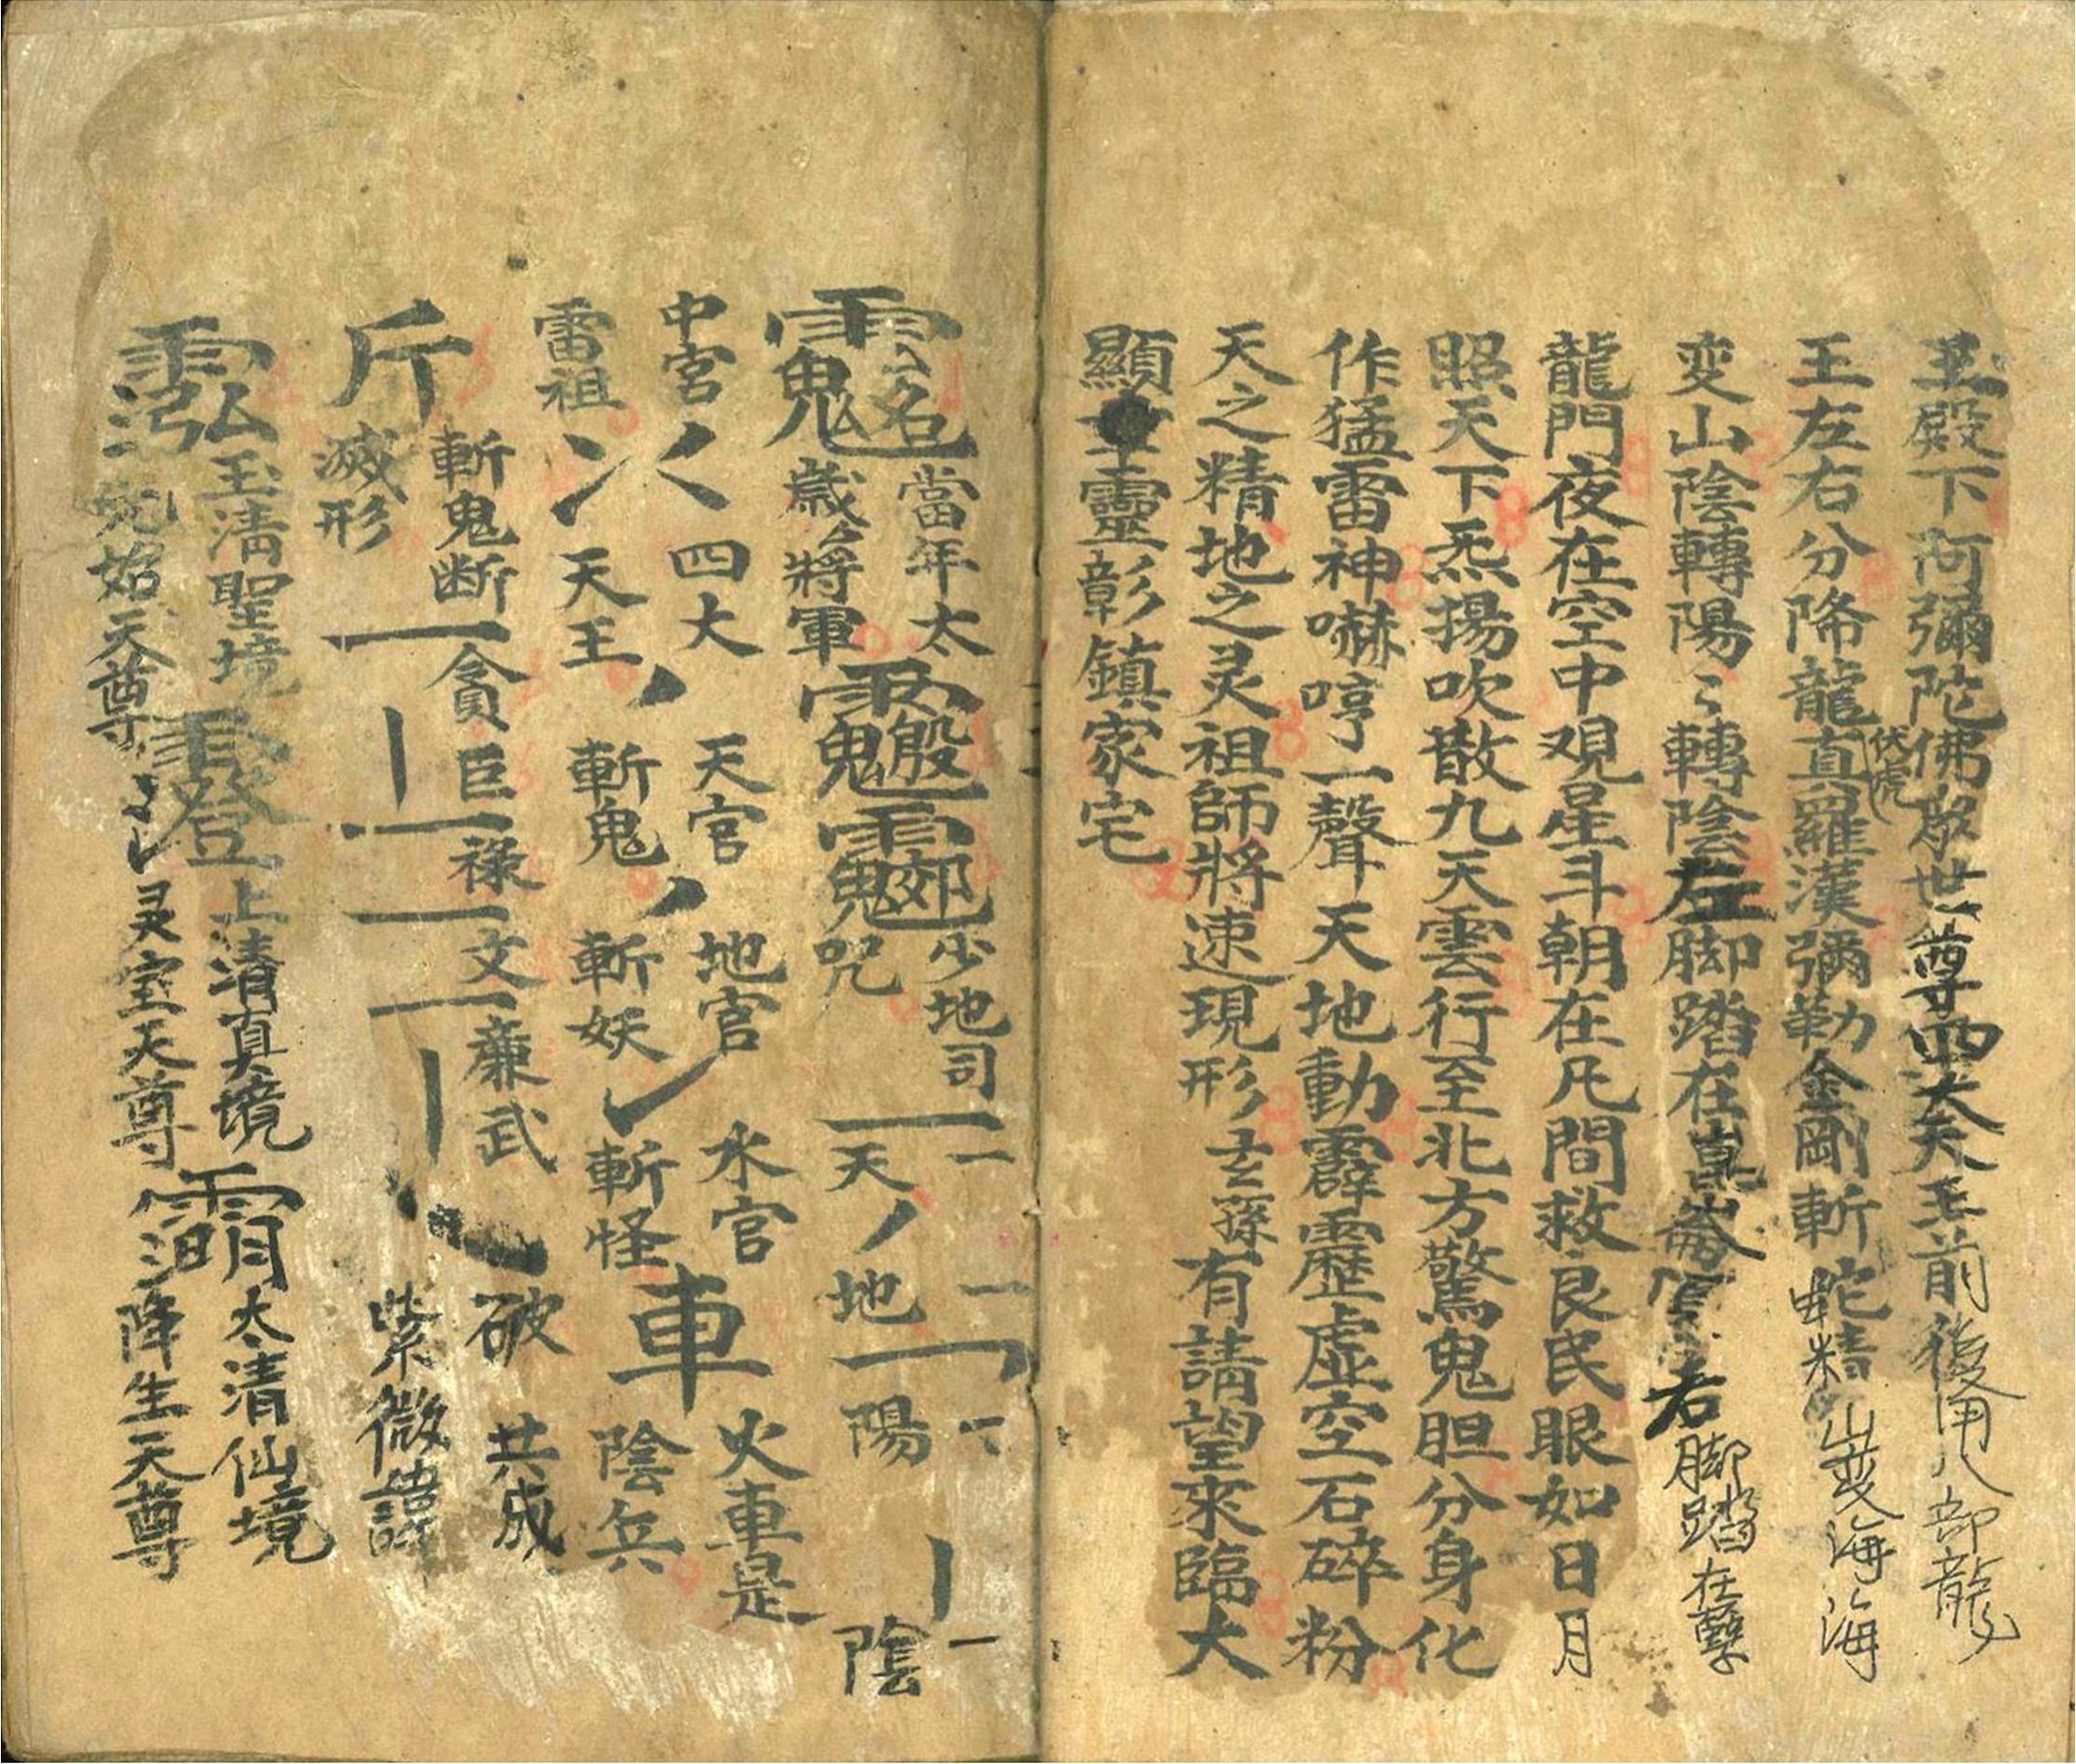 王殿下阿彌陀佛啟世尊四大天王前後甲八部龍
王左右分降龍伏虎直羅漢彌勒金剛斬蛇精蚌精山變海海
変山陰轉陽〻轉陰左脚踏在崑崙頂右脚踏在孽
龍門夜在空中观星斗朝在凡間救良民眼如日月
照天下炁揚吹散九天雲行至北方驚鬼胆分身化
作猛雷神嚇哼一聲天地動霹靂虛空石碎粉
天之精地之灵祖師將速現形玄孫有請望來臨大
顯靈彰鎮家宅
當年太歲將軍
少地司咒
一一天地一陽一陰
中宮四大天官地官水官火車是
雷祖天王斬鬼斬妖斬怪車陰兵
斬鬼断貪巨祿文廉武破共成
斤滅形紫微諱
玉清聖境上清真境太清仙境
元始天尊灵宝天尊降生天尊